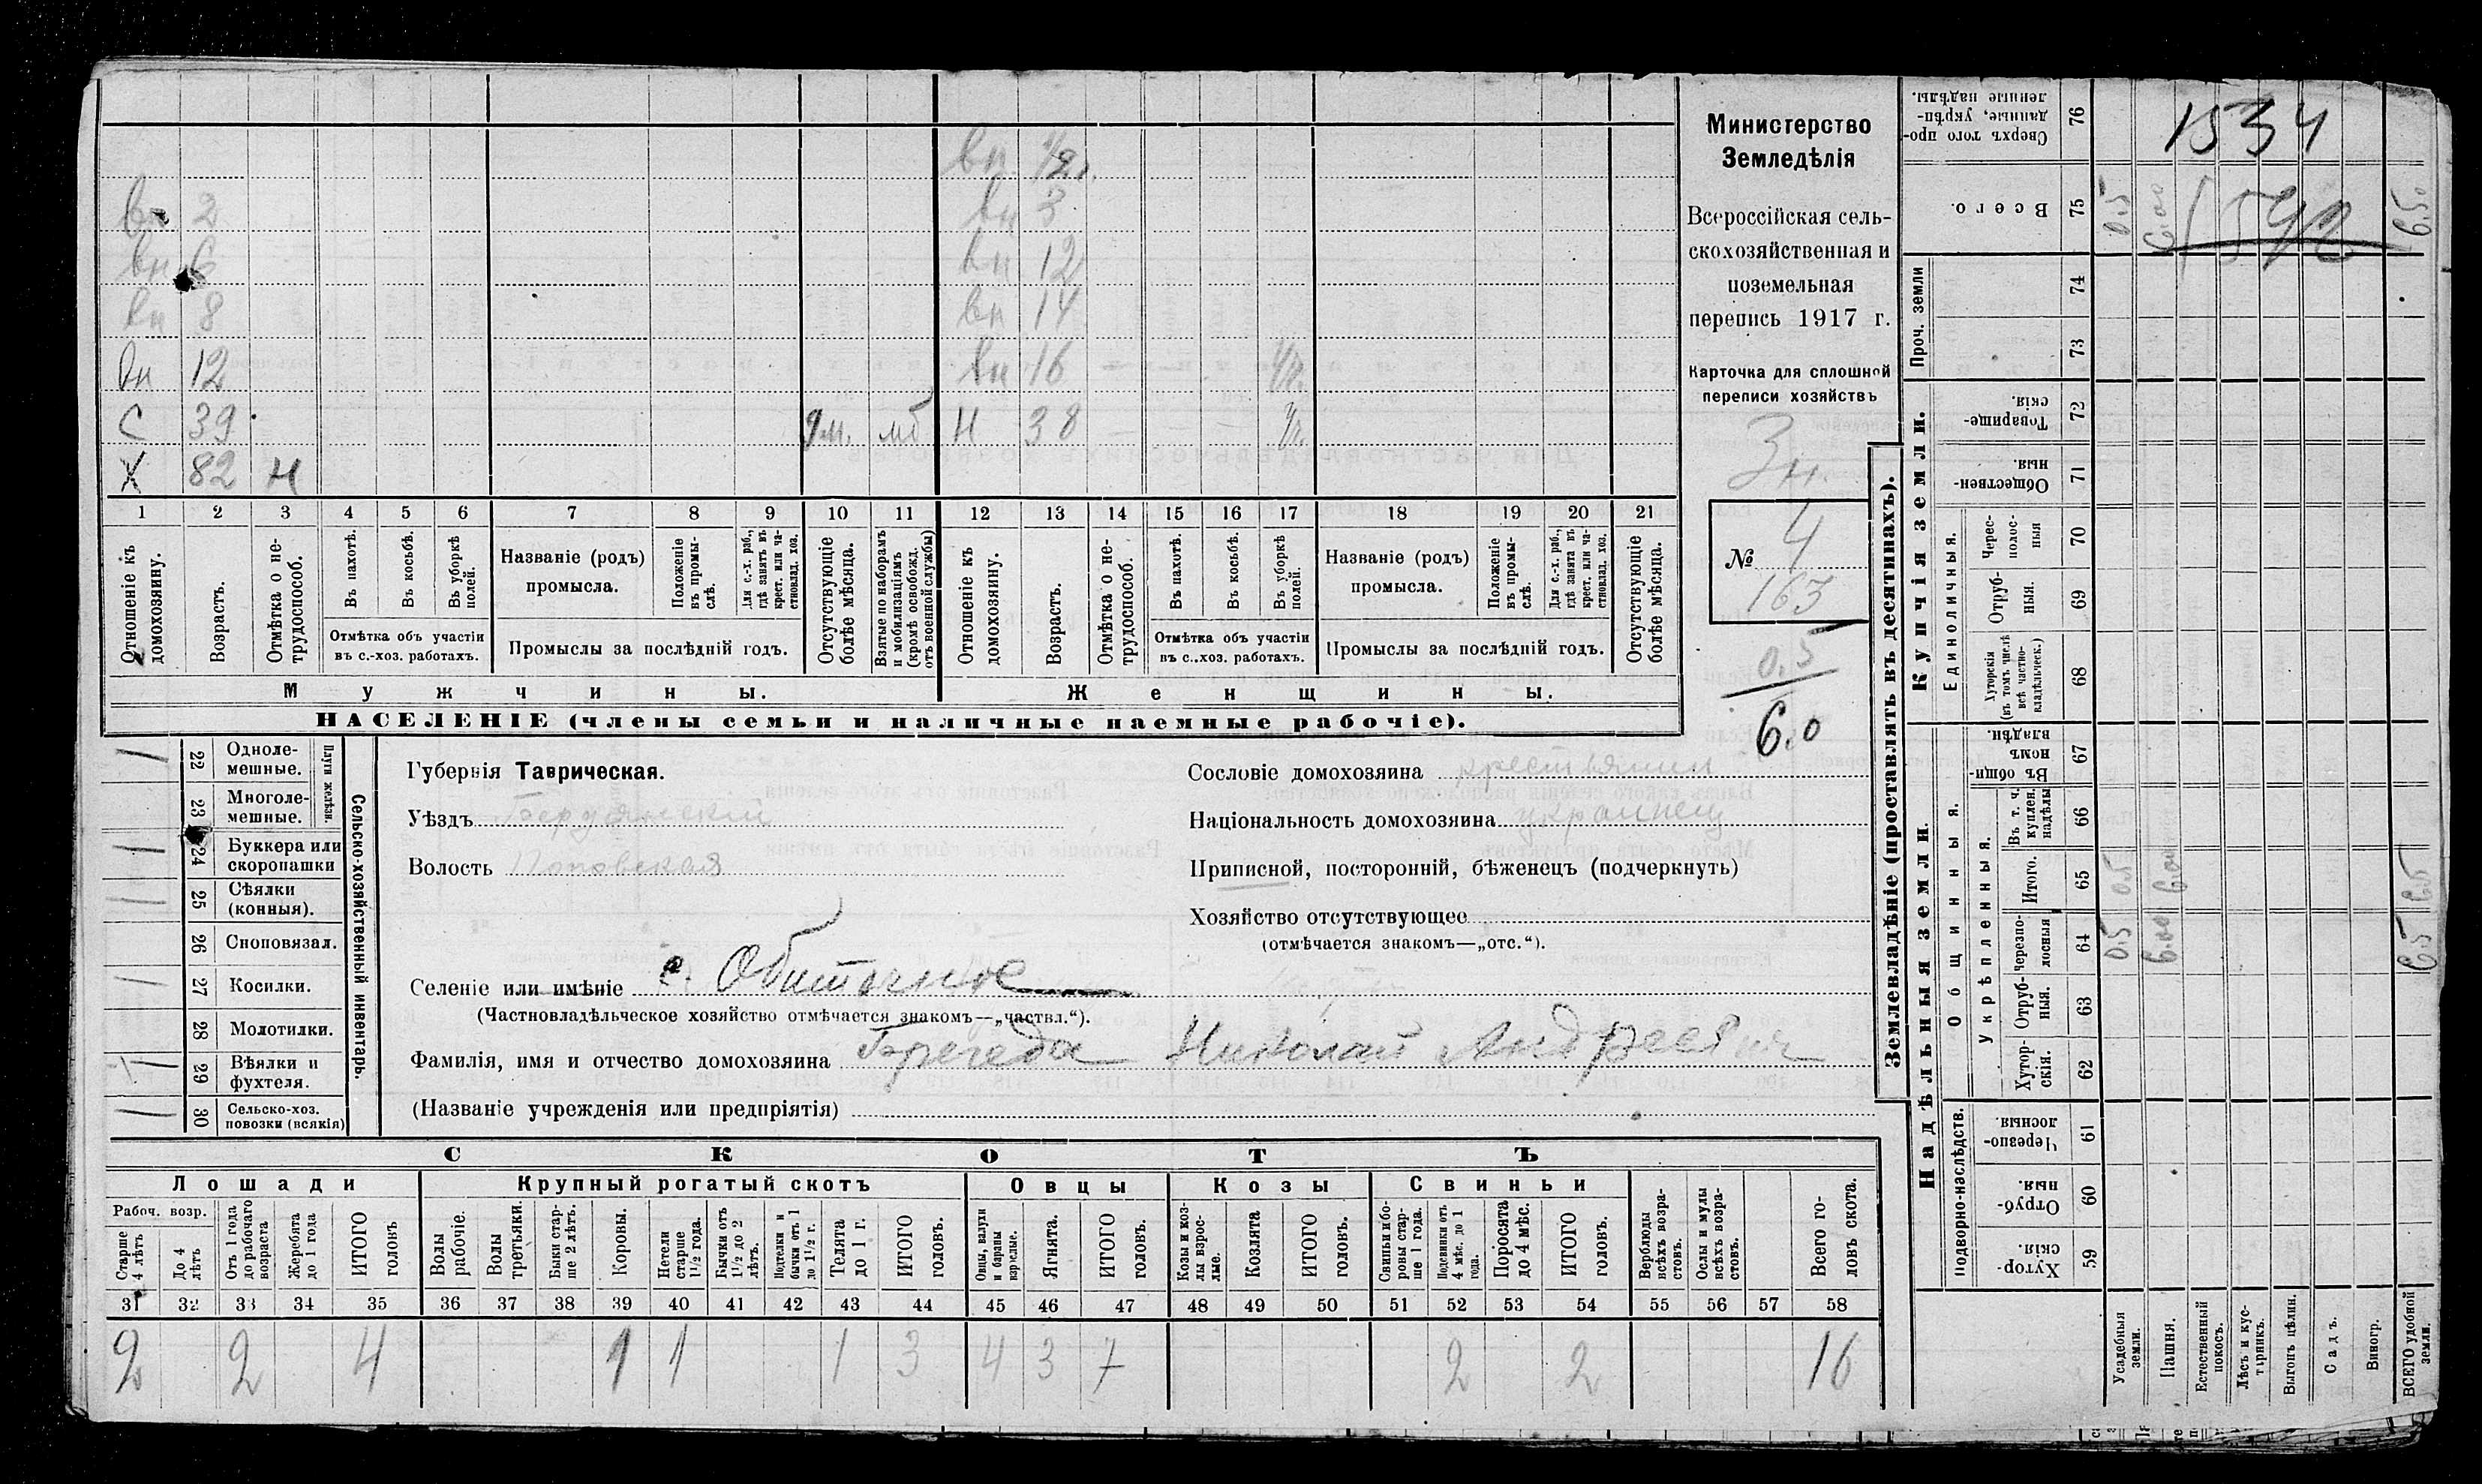 вн 1/2 г.
вн 2 вн 3
вн 6 вн 12
вн 8 вн 14
вн 12 вн 16 — 1/г.
С 39 9 м. мб Н 38 — —
Х 82 н
1 2 3 4 5 6 7 8 9 10 11 12 13 14 15 16 17 18 19 20 21
Отношеніе къ домохозяину.
Возрастъ.
Отмѣтка о не-
трудоспособ.
Въ пахотѣ.
Въ косьбѣ.
Въ уборкѣ полей.
Отмѣтка объ участіи
въ с.-хоз. работахъ.
Названіе (родъ)
промысла.
Положеніе въ промы-
слѣ.
Для с.-х. раб.,
гдѣ занятъ въ
крест. или ча-
стновлад. хоз.
Промыслы за послѣдній годъ.
Отсутствующіе
болѣе мѣсяца.
Взятые по наборамъ
и мобилизаціямъ
(кромѣ освобожд.
отъ военной службы)
Отношеніе къ
домохозяину.
Возрастъ.
Отмѣтка о не-
трудоспособ.
Въ пахотѣ.
Въ косьбѣ.
Въ уборкѣ
полей.
Отмѣтка объ участіи
въ с.-хоз. работахъ.
Названіе (родъ)
промысла.
Положеніе
въ промы-
слѣ.
Для с.-х. раб.,
гдѣ занята въ
крест. или ча-
стновлад. хоз.
Промыслы за послѣдній годъ.
Отсутствующіе
болѣе мѣсяца.
Мужчины.
Женщины.
НАСЕЛЕНІЕ (члены семьи и наличные наемные рабочіе).
Министерство
Земледѣлія
Всероссійская сель-
скохозяйственная и
поземельная
перепись 1917 г.
Карточка для сплошной
переписи хозяйствъ
3 н.
№ 4
163
0.5
6.0
1 22 Одноле-
мешные.
23 Многоле-
мешные.
Плуги желѣзн.
1 24 Буккера или
скоропашки
25 Сѣялки
(конныя).
26 Сноповязал.
1 27 Косилки.
28 Молотилки.
1 29 Вѣялки и
фухтеля.
1 30 Сельско-хоз.
повозки (всякія)
Сельско-хозяйственный инвентарь.
Губернія Таврическая.
Уѣздъ Бердянскій
Волость Поповская
Сословіе домохозяина крестьянин
Національность домохозяина украинец
Приписной, посторонній, бѣженецъ (подчеркнуть)
Хозяйство отсутствующее
(отмѣчается знакомъ—„отс.“).
Селеніе или имѣніе с. Обиточное
(Частновладѣльческое хозяйство отмѣчается знакомъ—„частвл.“).
Фамилія, имя и отчество домохозяина Николай Андреевич
(Названіе учрежденія или предпріятія)
СКОТЪ
Лошади
Крупный рогатый скотъ
Овцы
Козы
Свиньи
Рабоч. возр.
Старше
4 лѣтъ
До 4
лѣтъ
Отъ 1 года
до рабочаго
возраста
Жеребята
до 1 года
ИТОГО
головъ
Волы
рабочіе.
Волы
третьяки.
Быки стар-
ше 2 лѣтъ.
Коровы.
Нетели
старше
1½ года.
Бычки отъ
1½ до 2
лѣтъ.
Подтелки и
бычки отъ 1
до 1½ г.
Телята
до 1 г.
ИТОГО
головъ.
Овцы, валухи
и бараны
взрослые.
Ягнята.
ИТОГО
головъ.
Козы и коз-
лы взрос-
лые.
Козлята
ИТОГО
головъ.
Свиньи и бо-
ровы стар-
ше 1 года.
Подсвинки отъ
4 мѣс. до 1
года.
Поросята
до 4 мѣс.
ИТОГО
головъ.
Верблюды
всѣхъ возра-
стовъ.
Ослы и мулы
всѣхъ возра-
стовъ.
Всего го-
ловъ скота.
31 32 33 34 35 36 37 38 39 40 41 42 43 44 45 46 47 48 49 50 51 52 53 54 55 56 57 58
2 2 4 1 1 1 3 4 3 7 2 2 16
Землевладѣніе (проставлять въ десятинахъ).
1534
1592
Сверхъ того про-
данные, укрѣп-
ленные надѣлы.
76
Всего.
75
0.5 6.00 6.50
Проч. земли
74
73
Купчія земли.
Товарище-
скія.
72
Обществен-
ныя.
71
Единоличныя.
Черес-
полос-
ныя
70
Отруб-
ныя.
69
Хуторскія
(въ томъ числѣ
всѣ частно-
владѣльческ.)
68
Надѣльныя земли.
Общинныя.
Въ общи-
номъ
владѣн.
67
Укрѣпленныя.
Въ т. ч.
куплен.
надѣлы
66
Итого.
65
0.5 6.00 6.5
Черезпо-
лосныя
64
0.5 6.00 6.5
Отруб-
ныя.
63
Хутор-
скія.
62
Подворно-наслѣдств.
Черезпо-
лосныя.
61
Отруб-
ныя.
60
Хутор-
скія
59
Усадебныя
земли.
Пашня.
Естественный
покосъ.
Лѣсъ и кус-
тарникъ.
Выгонъ цѣлин.
Садъ.
Виногр.
ВСЕГО удобной
земли.